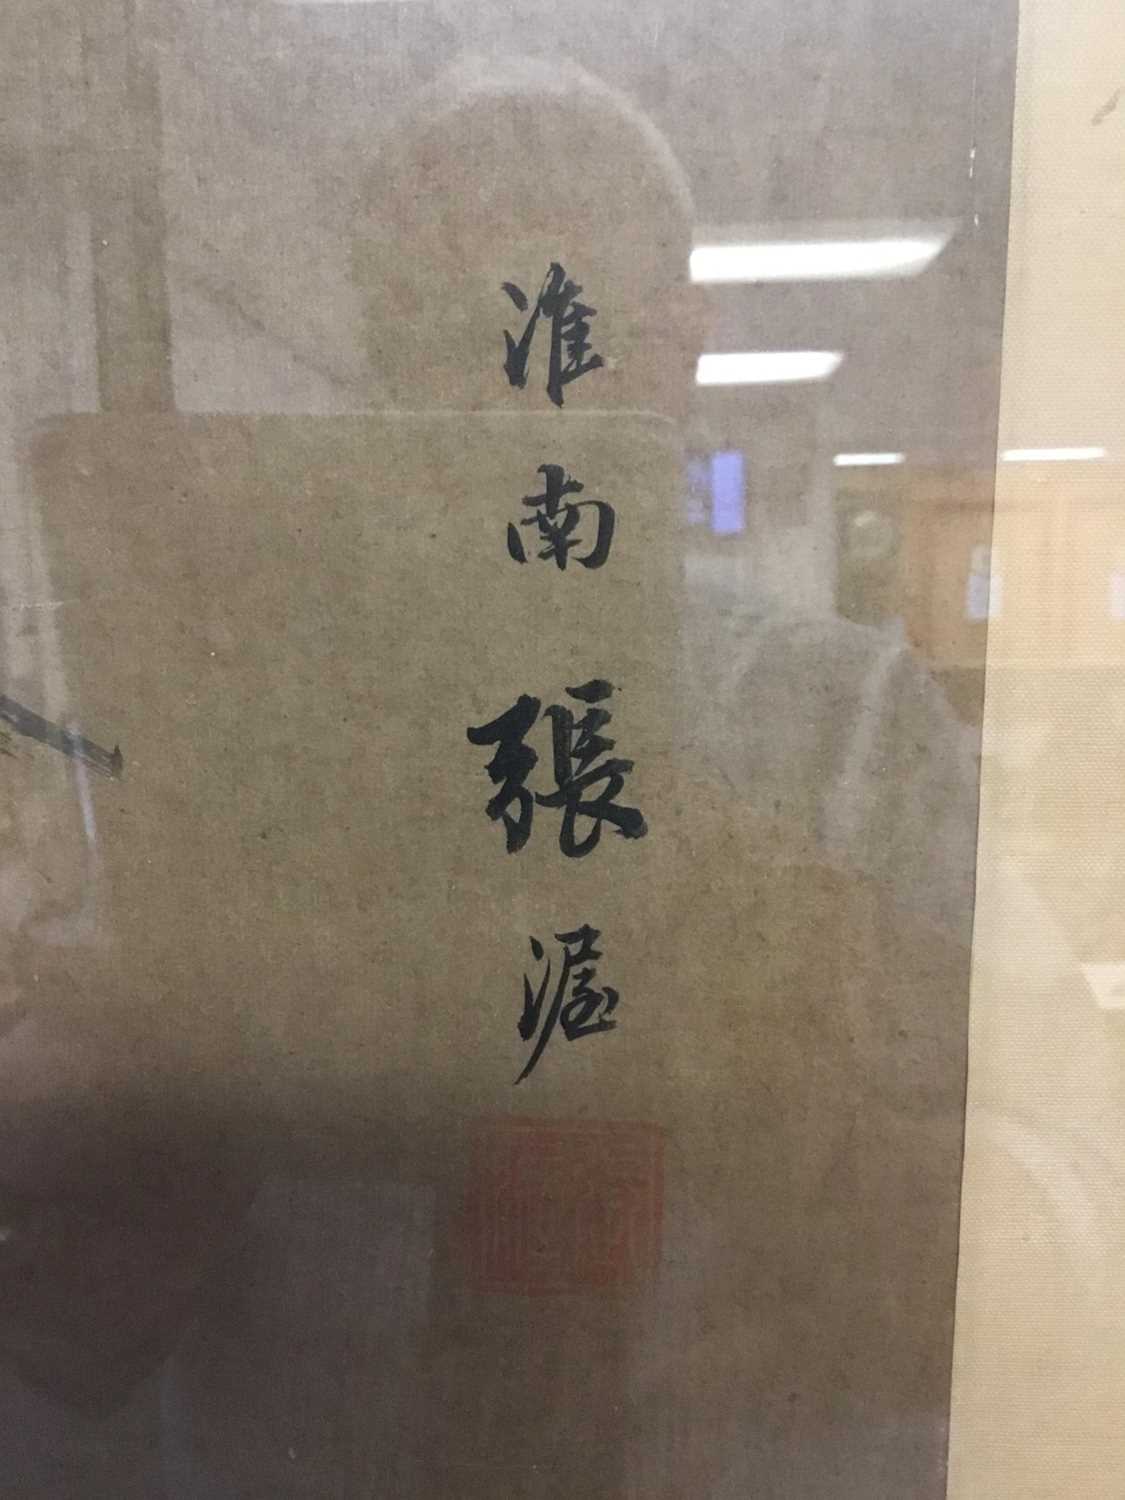 淮南張渥